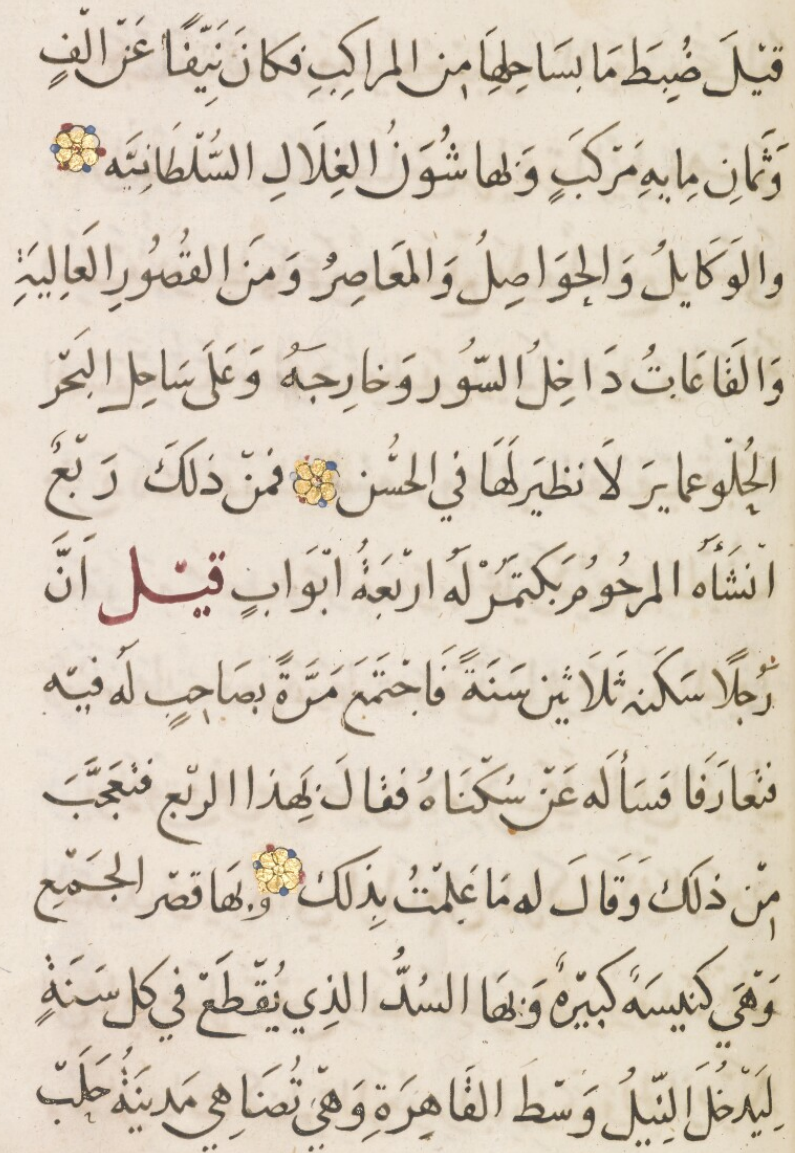 قيْلَ ضُبِطَ مَا بسَاحِلِهَا مِن المراكِبِ فكانَ نَيِّفًا عَنْ الْفٍ
وَثَمانِ مِايهِ مَرْكَبٍ وَبها شُوَنُ الغِلَالِ السُّلْطَانيَّه
والوَكَايلُ وَالحوَاصِلُ وَالمعَاصِرُ وَمنَ القصُورِ العَالِيَةِ
وَالقَاعَاتُ دَاخِلُ السّوُر وَخارِجهُ وَعَلَى سَاحِلِ البَحْر
الحُلْو عمايرَ لَا نظيَر لَهَا في الحسْن فمنْ ذلكَ رَبْعٌ
انْشَأهُ المرحُومُ بَكتمَرْ لَهُ ارْبَعَةُ ابْوَابٍ قيْل اَنَّ
رَجُلًا سَكَنه ثَلَاثين سَنَةً فَاجْتَمَعَ مَرَّةً بصَاحِبٍ لَه فيْه
فتعارَفَا فسَألَه عَنْ سُكْنَاهُ فقالَ بَهذا الربْع فتعَجَّبَ
مِنْ ذلك وَقَالَ له مَا عَلِمْتُ بِذلك وَبهَا قصْر الجَمْع
وَهَي كنيسَةٌ كبيْرةٌ وَبهَا السُدُّ الذِي يُقْطَعْ في كل سَنَةٍ
لِيَدْخُلَ النِّيلُ وَسْطَ القَاهِرَةِ وَهْيَ تُضَاهِي مَدينَةُ حَلَبْ